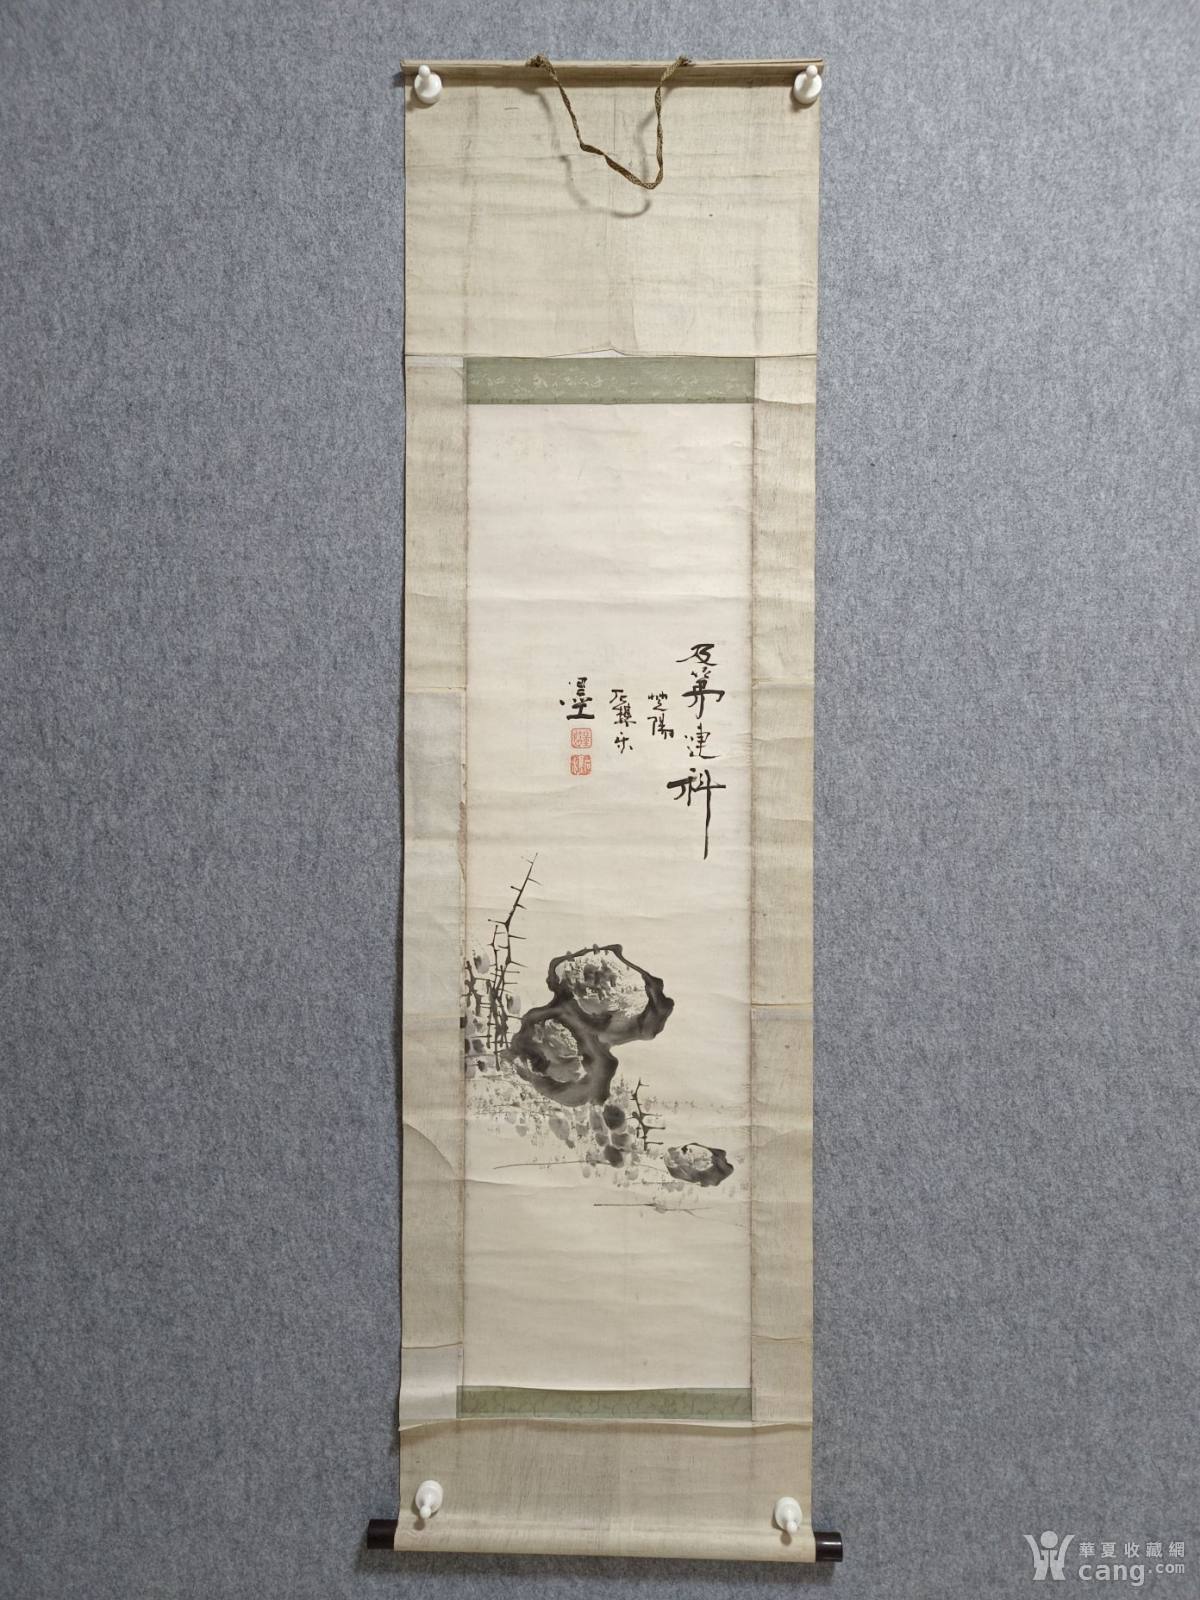 及第連科
楚陽
石樵朱
墨
華夏收藏網
cang.com